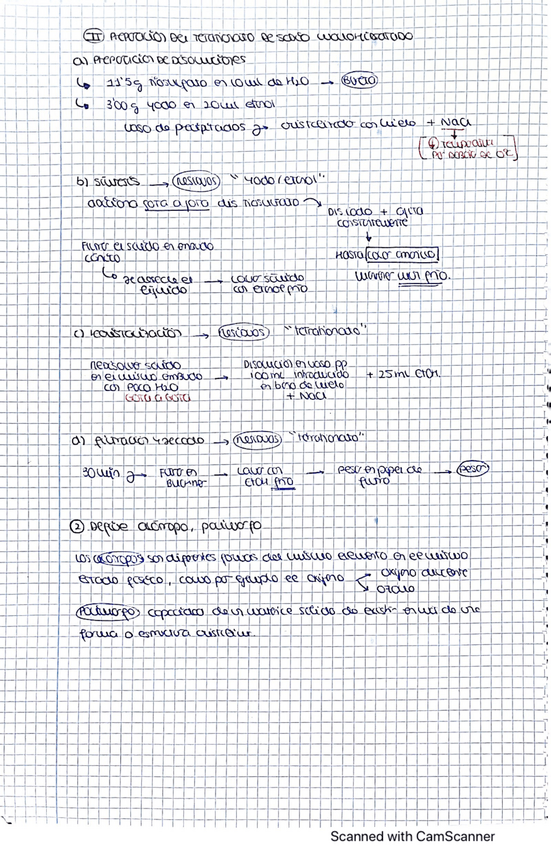 II PREPARACIÓN DEL TETRATIONATO DE SODIO
a) PREPARACIÓN DE DISOLUCIONES
↳ 11'5g tiosulfato en 10 ml de H₂O →
↳ 3'00g yodo en 20 ml etnol
vaso de precipitados con hielo + NaCl
b) síntesis → residuos "yodo/etnol"
gota a gota dis tiosulfato
Dis iodo + agita
constantemente
Filtro el sólido en embudo
Hasta color amarillo
↳ el
líquido
→ lavar sólido
con etnol frío
muy frío.
c) recristalización → residuos "tetrationato"
Redisolver sólido
en el mismo embudo
con poco H₂O
gota a gota
→ Disolución en vaso pp
100 ml introducido
en baño de hielo
+ NaCl
+ 25 ml EtOH
d) filtración y secado → residuos "tetrationato"
30 min Filtro en
Buchner
→ Lavar con
EtOH frío
→ peso en papel de
filtro
→ pesar
② Define alótropo, polimorfo
Los alótropos son diferentes formas del mismo elemento en el mismo
estado físico, como por ejemplo el oxígeno
ozono
polimorfo capacidad de un sólido de existir en más de una
forma o estructura cristalina.
Scanned with CamScanner